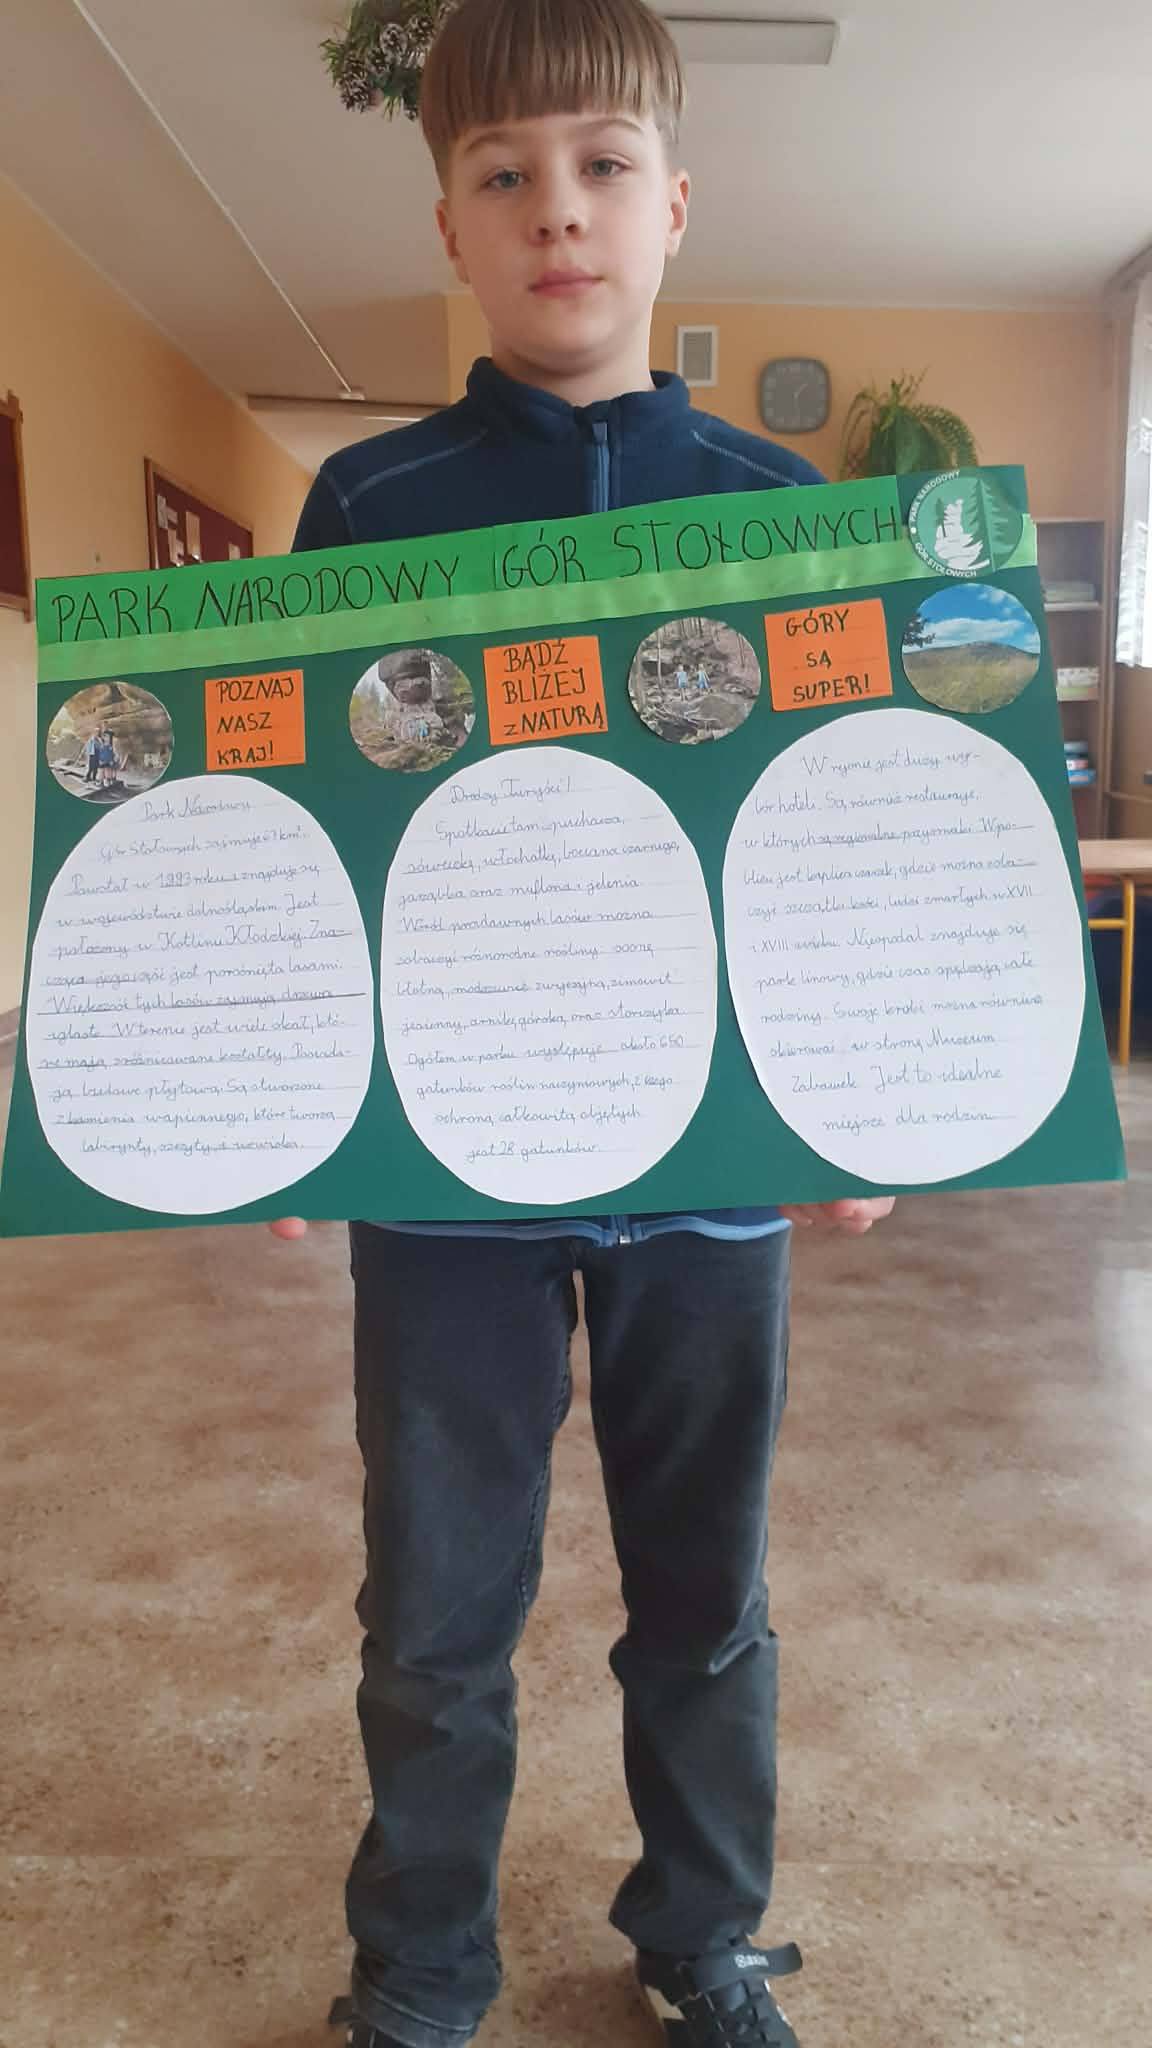 PARK NARODOWY GÓR STOŁOWYCH
PARK NARODOWY
GÓR STOŁOWYCH
POZNAJ
NASZ
KRAJ!
BĄDŹ
BLIŻEJ
z NATURĄ
GÓRY
SĄ
SUPER!
Park Narodowy
Gór Stołowych zajmuje 63 km².
Powstał w 1993 roku i znajduje się
w województwie dolnośląskim. Jest
położony w Kotlinie Kłodzkiej. Zna-
cząca jego część jest porośnięta lasami.
Większość tych lasów zajmują drzewa
iglaste. W terenie jest wiele skał, któ-
re mają zróżnicowane kształty. Posiada-
ją budowę płytową. Są stworzone
z kamienia wapiennego, które tworzą
labirynty, szczyty i urwiska.
Drodzy Turyści!
Spotkacie tam puchacza,
sóweczkę, włochatkę, bociana czarnego,
jarząbka oraz muflona i jelenia.
Wśród pradawnych lasów można
zobaczyć różnorodne rośliny: sosnę
błotną, modrzewie zwyczajną, zimowit
jesienny, arnikę górską oraz storczyka
Ogółem w parku występuje około 650
gatunków roślin naczyniowych, z czego
ochroną całkowitą objętych
jest 28 gatunków.
W rejonie jest duży wy-
bór hoteli. Są również restauracje,
w których są regionalne przysmaki. W po-
bliżu jest kaplica czaszek, gdzie można zoba-
czyć szczątki kości, ludzi zmarłych w XVII
i XVIII wieku. Nieopodal znajduje się
park linowy, gdzie czas spędzają całe
rodziny. Swoje kroki można również
skierować w stronę Muzeum
Zabawek. Jest to idealne
miejsce dla rodzin.